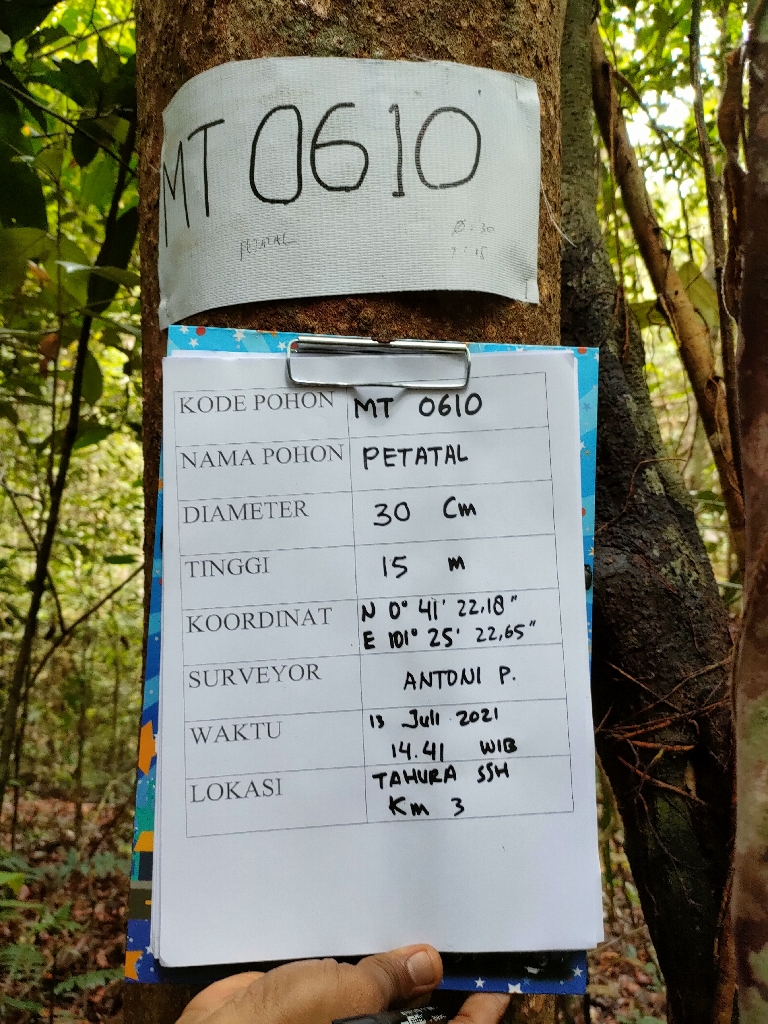 MT 0610
PETATAL
Ø : 30
T : 15
KODE POHON MT 0610
NAMA POHON PETATAL
DIAMETER 30 Cm
TINGGI 15 m
KOORDINAT N 0° 41' 22.18"
E 101° 25' 22,65"
SURVEYOR ANTONI P.
WAKTU 13 Juli 2021
14.41 WIB
LOKASI TAHURA SSH
Km 3